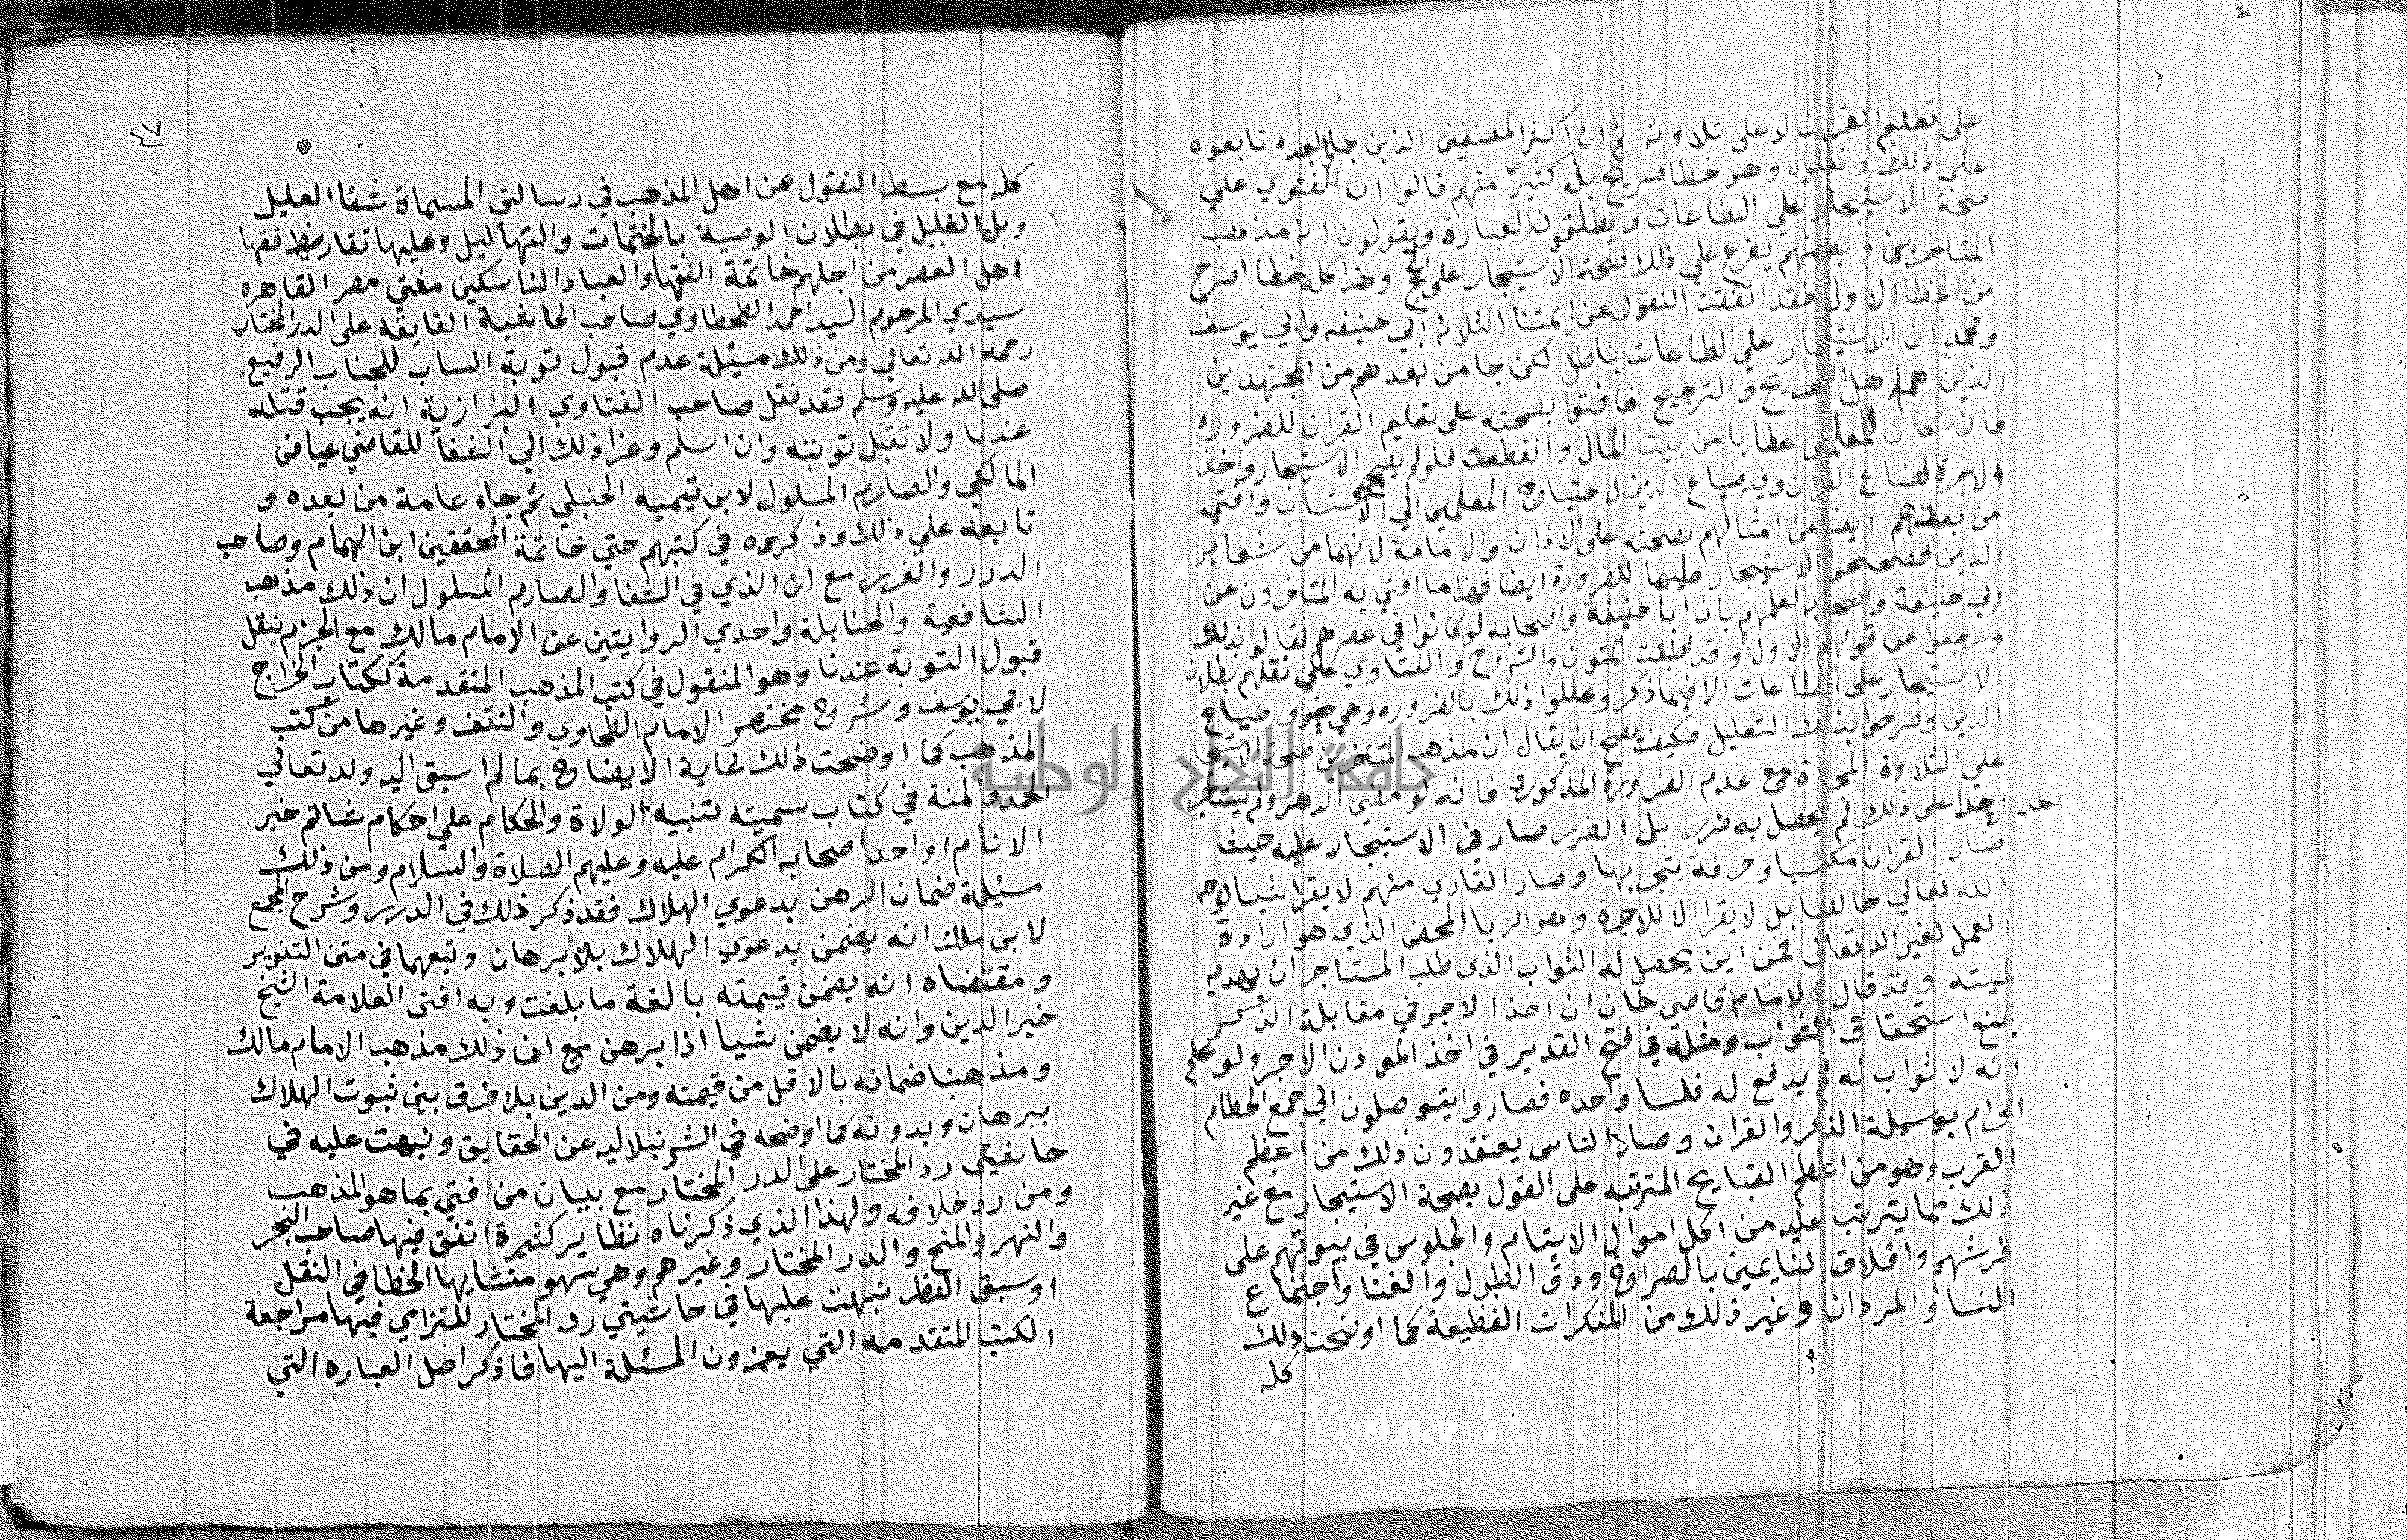 على تعليم القران لا على تلاوته ثم ان اكثر المصنفين الذين جاوا بعده تابعوه
على ذلك ونقلوه وهو خطا صريح بل كثير منهم قالوا ان الفتوي علي
صحة الاستيجار علي الطاعات ويطلقون العبارة ويقولون انه مذهب
المتاخرين وبعضهم يفرع علي ذلك صحة الاستيجار على الحج وهذا كله خطا اصرح
من الخطا الاول فقد اتفقت النقول عن ايمتنا الثلاثة ابي حنيفه وابي يوسف
ومحمد ان الاستيجار علي الطاعات باطل لكن جا من بعدهم من المجتهدين
الذين هم اهل التخريج والترجيح فافتوا بصحته على تعليم القران للضروره
فانه كان للمعلمين عطايا من بيت المال وانقطعت فلو لم يصح الاستيجار واخذ
الاجرة لضاع القران وفيه ضياع الدين لاحتياج المعلمين الي الاكتساب وافتي
من بعدهم ايضا من امثالهم بصحته على الاذان والامامة لانهما من شعاير
الدين فصححوا الاستيجار عليهما للضرورة ايضا فهذا ما افتي به المتاخرون عن
ابي حنيفة واصحابه لعلمهم بان ابا حنيفة واصحابه لو كانوا في عصرهم لقالوا بذلك
ورجعوا عن قولهم الاول وقد اطبقت المتون والشروح والفتاوي علي نقلهم بطلان
الاستيجار على الطاعات الا فيما ذكر وعللوا ذلك بالضروره وهي خوف ضياع
الدين وصرحوا بذلك التعليل فكيف يصح ان يقال ان مذهب المتاخرين صحة الاستيجار
على التلاوة المجردة مع عدم الضرورة المذكورة فانه لو مضي الدهر ولم يستاجر
احد احدا على ذلك لم يحصل به ضرر بل الضرر صار في الاستيجار عليه حيث
صار القران مكسبا وحرفة يتجر بها وصار القاري منهم لا يقرا شيا لوجه
الله تعالي خالصا بل لا يقرا الا للاجرة وهو الريا المحض الذي هو ارادة
العمل لغير الله تعالى فمن اين يحصل له الثواب الذي طلب المستاجر ان يهديه
لميته وقد قال الامام قاضي خان ان اخذ الاجر في مقابلة الذكر
يمنع استحقاق الثواب ومثله في فتح القدير في اخذ الموذن الاجر ولو علم
انه لا ثواب له لم يدفع له فلسا واحده فصاروا يتوصلون الي جمع الحطام
الحرام بوسيلة الذكر والقران وصار الناس يعتقدون ذلك من اعظم
القرب وهو من اعظم القبايح المترتبه على القول بصحة الاستيجار مع غير
ذلك مما يترتب عليه من اكل اموال الايتام والجلوس في بيوتهم على
فرشهم واقلاق النايمين بالصراخ ودق الطبول والغنا واجتماع
النسا والمردان وغير ذلك من المنكرات الفظيعة كما اوضحت ذلك
كله
٤٧
كله مع بسط النقول عن اهل المذهب في رسالتي المسماة شفا العليل
وبل الغليل في بطلان الوصية بالختمات والتهاليل وعليها تقاريظ فقها
اهل العصر من اجلهم خاتمة الفقها والعباد الناسكين مفتي مصر القاهره
سيدي المرحوم السيد احمد الطحطاوي صاحب الحاشية الفايقه على الدر المختار
رحمه الله تعالي ومن ذلك مسئلة عدم قبول توبة الساب للجناب الرفيع
صلى الله عليه وسلم فقد نقل صاحب الفتاوي البزازية انه يجب قتله
عندنا ولا تقبل توبته وان اسلم وعزا ذلك الي الشفا للقاضي عياض
المالكي والصارم المسلول لابن تيميه الحنبلي ثم جاء عامة من بعده و
تابعه علي ذلك وذكروه في كتبهم حتي خاتمة المحققين ابن الهمام وصاحب
الدرر والغرر مع ان الذي في الشفا والصارم المسلول ان ذلك مذهب
الشافعية والحنابلة واحدي الروايتين عن الامام مالك مع الجزم بنقل
قبول التوبة عندنا وهو المنقول في كتب المذهب المتقدمة ككتاب الخراج
لابي يوسف وشروح مختصر الامام الطحاوي والنتف وغيرها من كتب
المذهب كما اوضحت ذلك غاية الايضاح بما لم اسبق اليه ولله تعالي
الحمد والمنة في كتاب سميته لتنبيه الولاة والحكام علي احكام شاتم خير
الانام او احد اصحابه الكرام عليه وعليهم الصلاة والسلام ومن ذلك
مسئلة ضمان الرهن بدعوي الهلاك فقد ذكر ذلك في الدرر وشرح المجمع
لابن ملك انه يضمن بدعوي الهلاك بلا برهان وتبعهما في متن التنوير
ومقتضاه انه يضمن قيمته بالغة ما بلغت وبه افتى العلامة الشيخ
خير الدين وانه لا يضمن شيا اذا برهن مع ان ذلك مذهب الامام مالك
ومذهبنا ضمانه بالاقل من قيمته ومن الدين بلا فرق بين ثبوت الهلاك
ببرهان وبدونه كما اوضحه في الشرنبلاليه عن الحقايق ونبهت عليه في
حاشيتي رد المختار على الدر المختار مع بيان من افتي بما هو المذهب
ومن رد خلافه ولهذا الذي ذكرناه نظاير كثيرة اتفق فيها صاحب البحر
والنهر والمنح والدر المختار وغيرهم وهي سهو منشايها الخطا في النقل
او سبق النظر نبهت عليها في حاشيتي رد المختار للتزامي فيها مراجعة
الكتب المتقدمه التي يعزون المسئلة اليها فاذكر اصل العباره التي
جامعة النجاح الوطنية